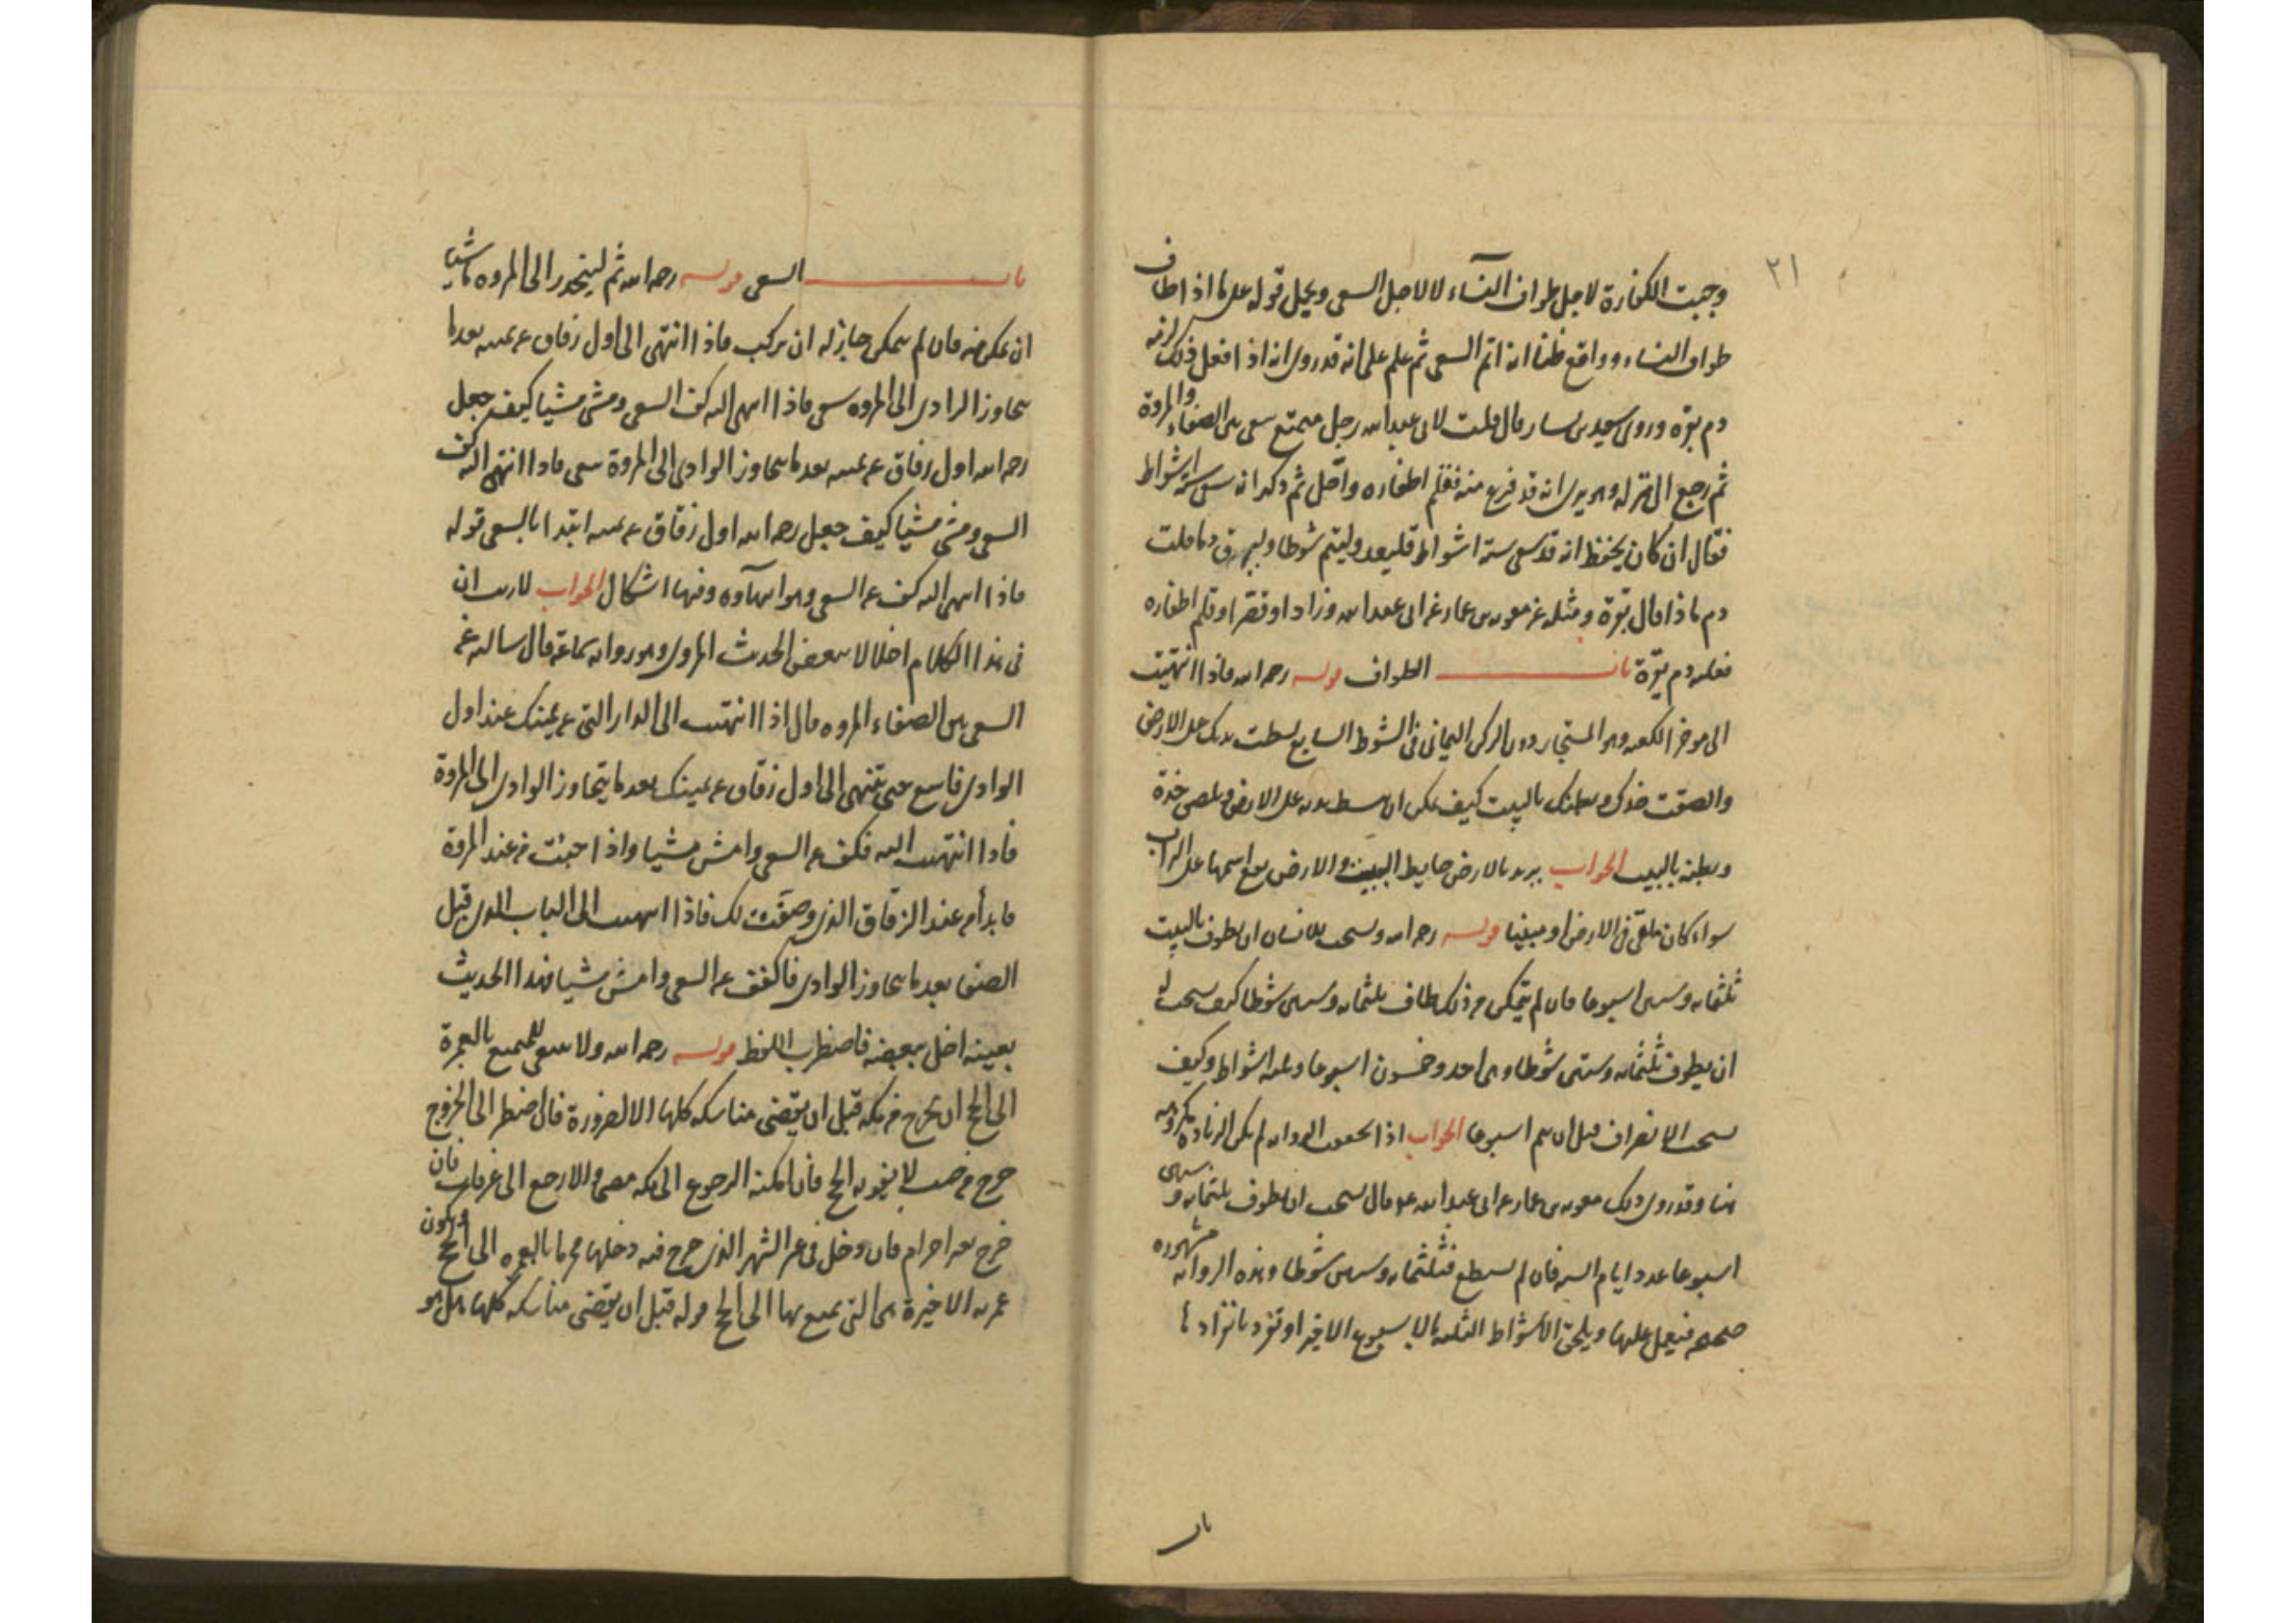 ٢١
وجبت الكفارة لاجل طواف النسآء لا لاجل السعى ويحمل قوله على ما اذا طاف
طواف النساء وواقع ظنا انه اتم السعى ثم علم على انه قد روى انه اذا فعل ذلك لزمه
دم بقرة وروى سعيد بن يسار قال قلت لابى عبد الله رجل متمتع سعى بين الصفا والمروة
ثم رجع الى منزله وهو يرى انه قد فرغ منه فقلم اظفاره واحل ثم ذكر انه سعى ستة اشواط
فقال ان كان يحفظ انه قد سعى ستة اشواط فليعد وليتم شوطا وليهرق دما قلت
دم ماذا قال بقرة ومثله عن معوية بن عمار عن ابى عبد الله وزاد او قصر او قلم اظفاره
فعليه دم بقرة باب الطواف قوله رحمه الله فاذا انتهيت
الى موخر الكعبه وهو المستجار دون الركن اليمانى فى الشوط السابع بسطت يدك على الارض
والصقت خدك وبطنك بالبيت كيف يمكن ان يبسط يديه على الارض ويلصق خده
وبطنه بالبيت الجواب يريد بالارض حايط البيت والارض يقع اسمها على التراب
سواء كان ملقى فى الارض او مبنيا قوله رحمه الله ويستحب للانسان ان يطوف بالبيت
ثلثمايه وستين اسبوعا فان لم يتمكن من ذلك طاف ثلثمايه وستين شوطا كيف يستحب له
ان يطوف ثلثمايه وستين شوطا وهى احد وخمسون اسبوعا وثلثه اشواط وكيف
يستحب الانصراف قبل ان يتم اسبوعا الجواب اذا تحققت الروايه لم يكن الزياده مكروهه
هنا وقد روى ذلك معوية بن عمار عن ابى عبد الله ع قال يستحب ان يطوف ثلثمايه وستين
اسبوعا عدد ايام السنه فان لم يستطع فثلثمايه وستين شوطا وهذه الروايه مشهوره
صحيحه فيعمل عليها ويلحق الاشواط الثلثه بالاسبوع الاخير او تفرد بانفرادها
باب
باب السعى قوله رحمه الله ثم لينحدر الى المروه ماشيا
ان تمكن منه فان لم يتمكن جاز له ان يركب فاذا انتهى الى اول زقاق عن يمينه بعد ما
يتجاوز الوادى الى المروه سعى فاذا انتهى اليه كف السعى ومشى مشيا كيف جعل
رحمه الله اول زقاق عن يمينه بعد ما يتجاوز الوادى الى المروة سعى فاذا انتهى اليه كف
السعى ومشى مشيا كيف جعل رحمه الله اول زقاق عن يمينه ابتدا بالسعى قوله
فاذا انتهى اليه كف عن السعى وهو انتهآوه وفيها اشكال الجواب لا ريب ان
فى هذا الكلام اخلالا ببعض الحديث المروى وهو روايه سماعة قال سالته عن
السعى بين الصفا والمروه قال اذا انتهيت الى الدار التى عن يمينك عند اول
الوادى فاسع حتى تنتهى الى اول زقاق عن يمينك بعد ما يتجاوز الوادى الى المروة
فاذا انتهيت اليه فكف عن السعى وامش مشيا واذا جئت من عند المروة
فابدأ من عند الزقاق الذى وصفت لك فاذا انتهيت الى الباب الذى قبل
الصفا بعد ما يتجاوز الوادى فاكفف عن السعى وامش مشيا فهذا الحديث
بعينه اخل ببعضه فاضطرب اللفظ قوله رحمه الله ولا ينبغى للمتمتع بالعمرة
الى الحج ان يخرج من مكه قبل ان يقضى مناسكه كلها الا لضرورة فان اضطر الى الخروج
خرج من حيث لا يفوته الحج فان امكنه الرجوع الى مكه مضى والا رجع الى عرفات فان
خرج بغير احرام فان دخل فى غير الشهر الذى خرج فيه دخلها محرما بالعمره الى الحج وتكون
عمرته الاخيرة هى التى يتمتع بها الى الحج قوله قبل ان يقضى مناسكه كلها هل هو